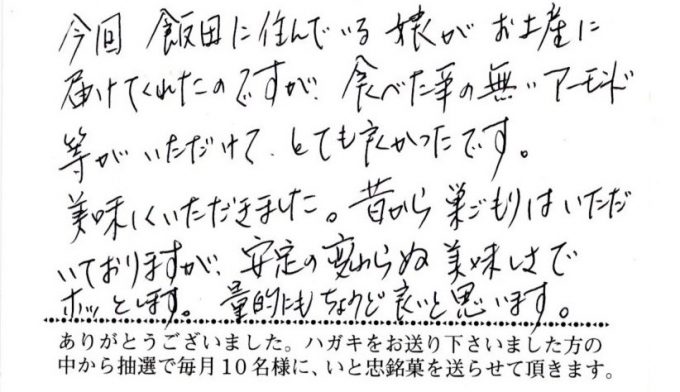 今回 飯田に住んでいる 娘が お土産に
届けてくれたのですが、食べた事の無いアーモンド
等がいただけて、とても良かったです。
美味しくいただきました。昔から 巣ごもりはいただ
いておりますが、安定の変わらぬ美味しさで
ホッとします。量的にもちょうど良いと思います。
ありがとうございました。ハガキをお送り下さいました方の
中から抽選で毎月10名様に、いと忠銘菓を送らせて頂きます。